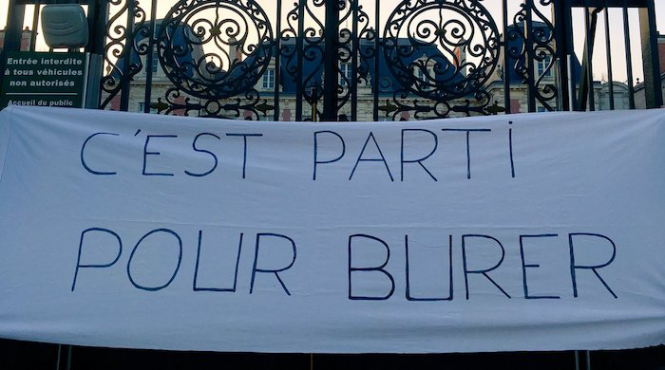 Entrée interdite
à tous véhicules
non autorisés
Accueil du public
C'EST PARTi
POUR BURER